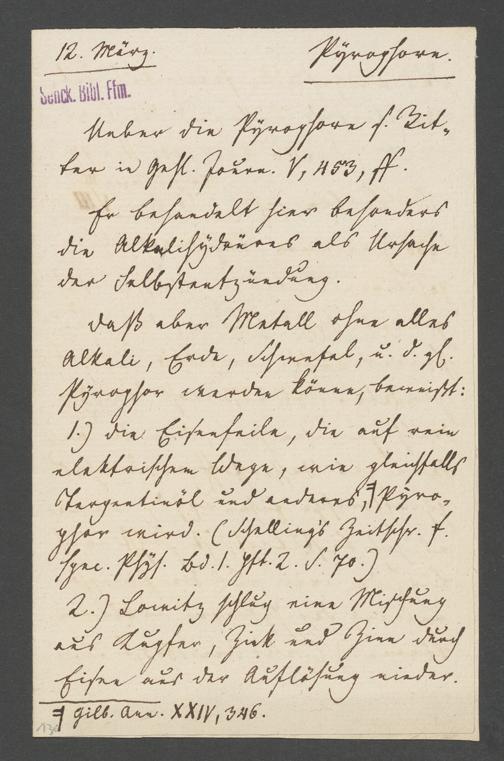 12. März. Pyrophore.
Senck. Bibl. Ffm.
Ueber die Pyrophore s. Rit-
ter in Gehl. Journ. V, 453, ff.
Er behandelt hier besonders
die Alkalihydrüres als Ursache
der Selbstentzündung.
Daß aber Metall ohne alles
Alkali, Erde, Schwefel, u. d. gl.
Pyrophor werden könne, beweißt:
1.) die Eisenfeile, die auf rein
elektrischem Wege, wie gleichfalls
Terpentinöl und anderes, Pyro-
phor wird. (Schelling's Zeitschr. f.
spec. Phys. Bd. 1. Hft. 2. S. 70.)
2.) Lowitz schlug eine Mischung
aus Kupfer, Zink und Zinn durch
Eisen aus der Auflösung nieder.
Gilb. Ann. XXIV, 346.